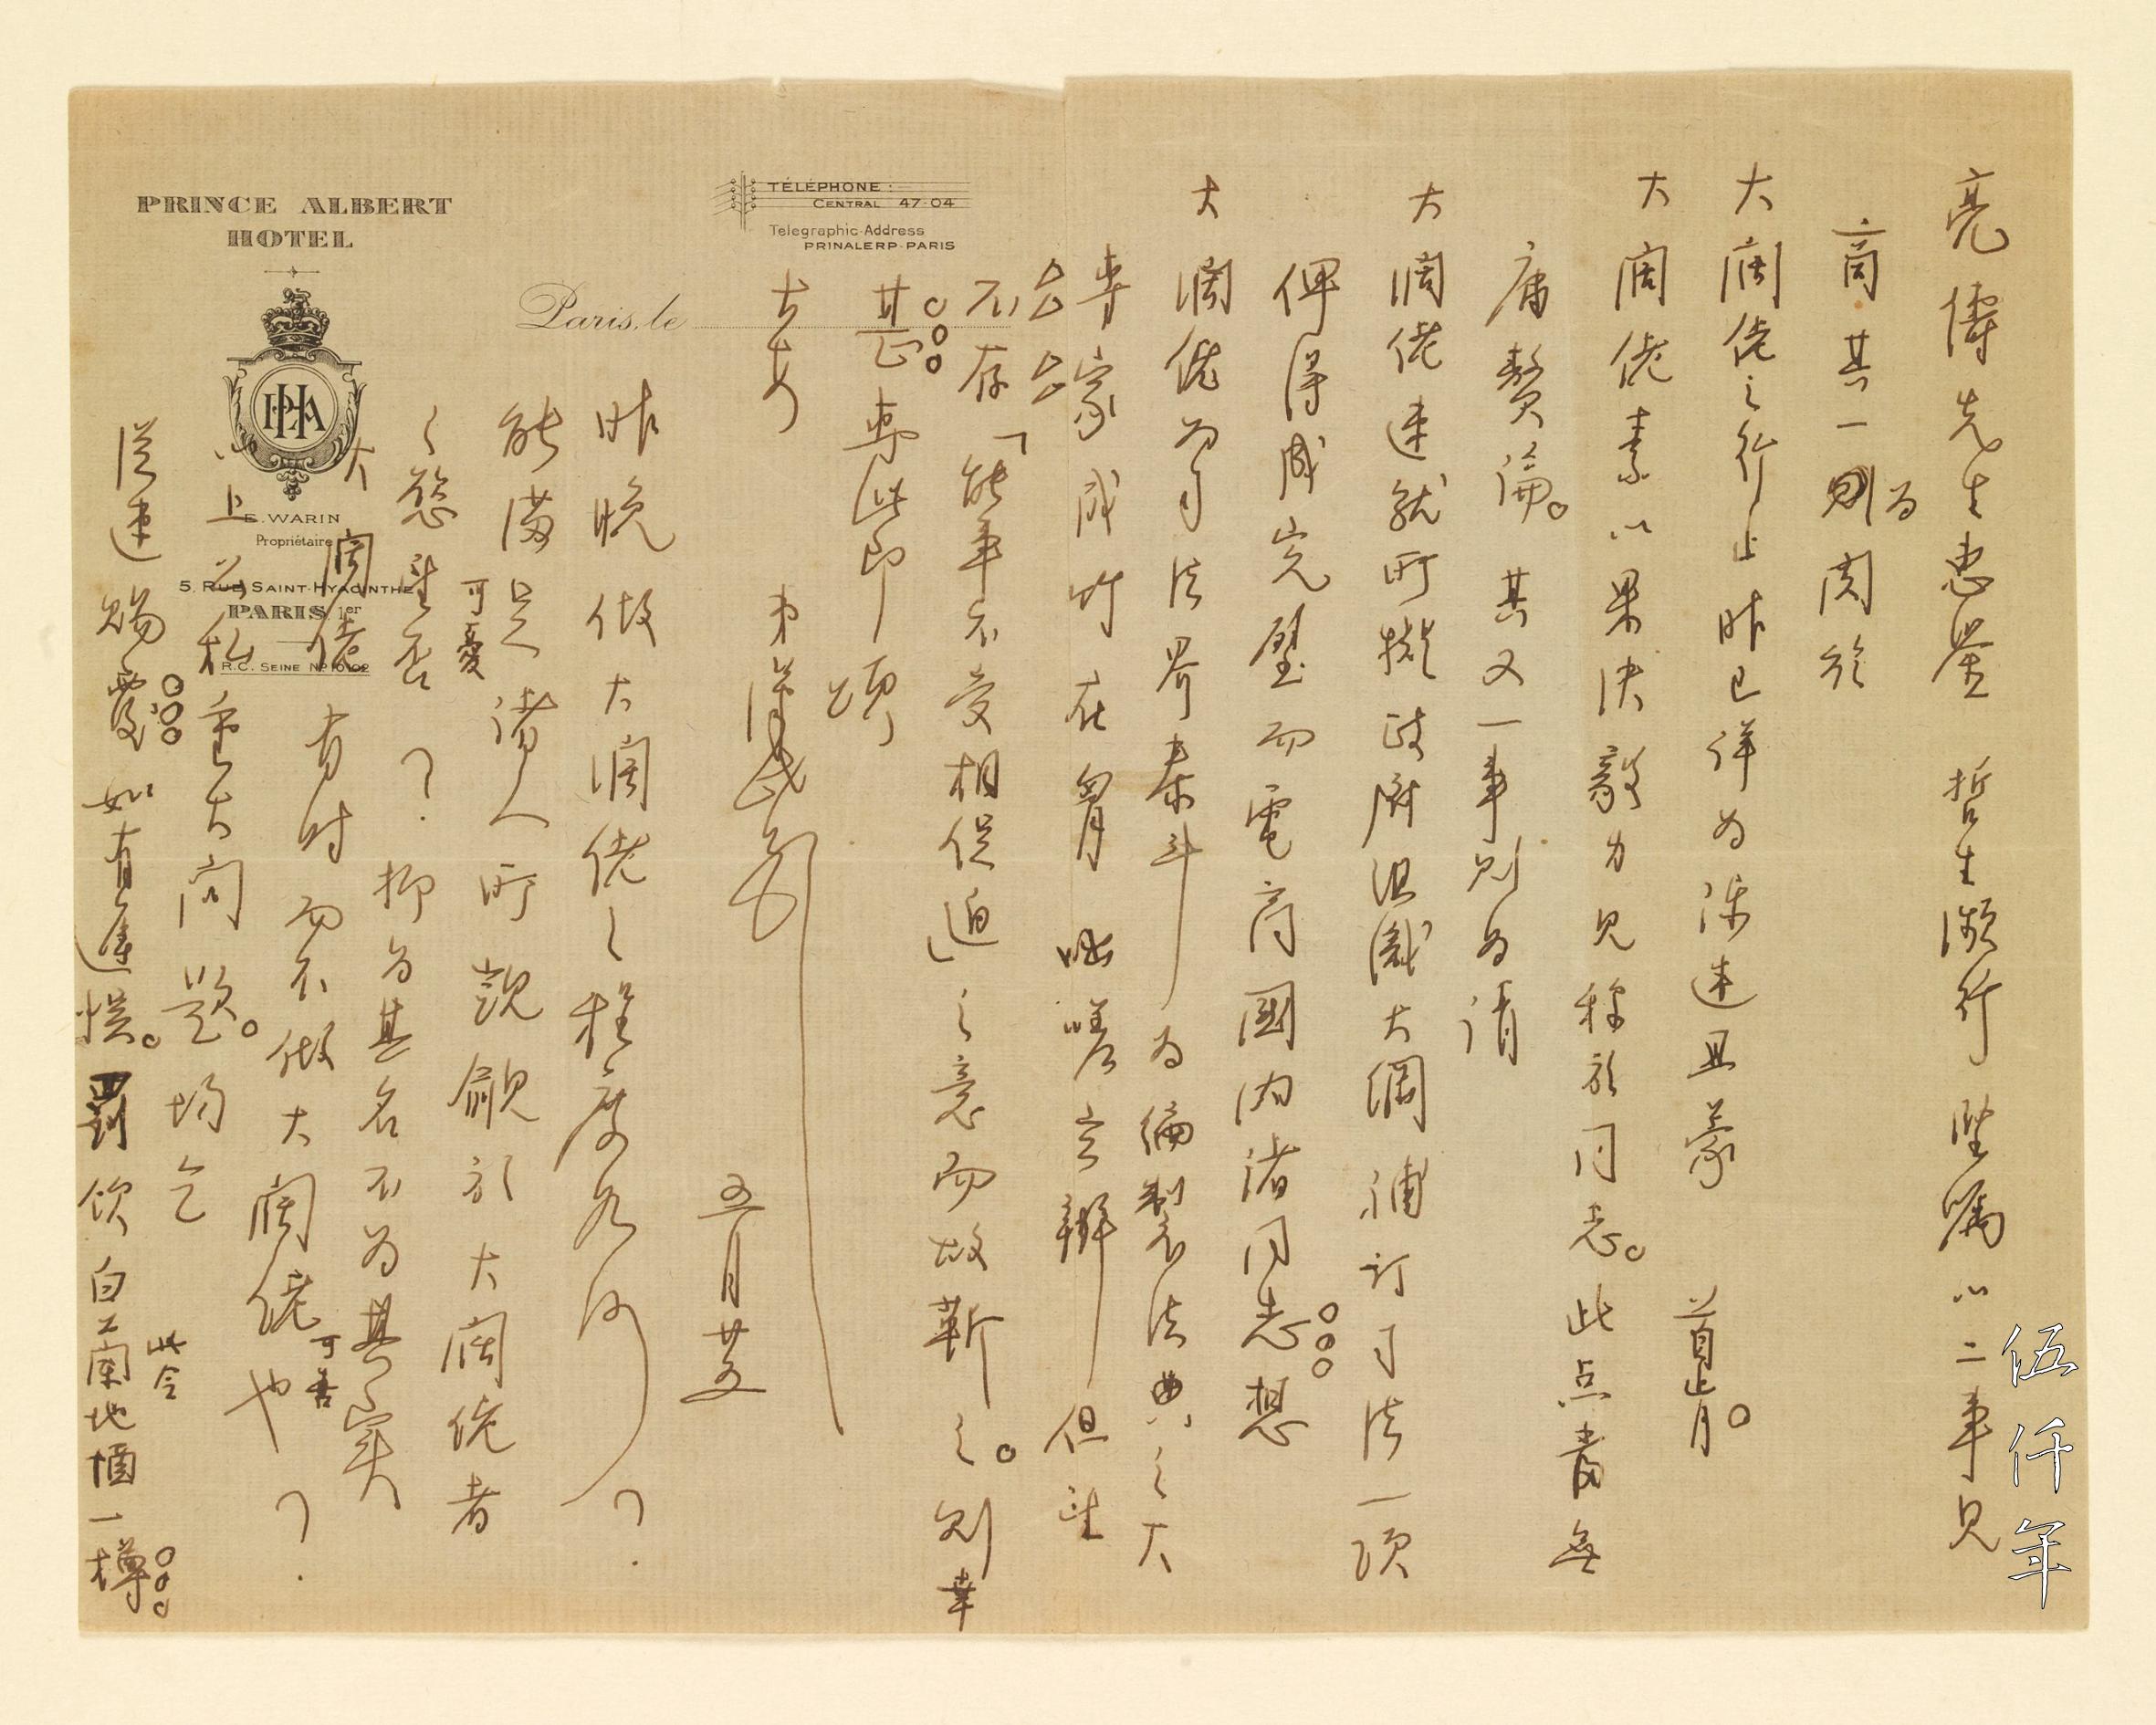 亮儔先生惠鑒 哲生瀕行堅囑以二事見
商其一為關於
大闊佬之行止昨已詳為陳述且蒙 首肯
大闊佬素以果決毅力見稱於同志此点當無
庸贅論其又一事則為請
大濶佬速就所擬政府組織大綱補訂司法一項
俾得成完璧而電商國內諸同志想
大濶佬為司法界泰斗為編製法典之大
專家成竹在胸咄嗟立辦但望
不存「能事不受相促迫之意而故靳之則幸
甚專此即頌
大安
弟漢民 五月廿
昨晚做大濶佬之程度為何?
能满足諸人所覬覦於大闊佬者
之慾望否?抑為其名不為其實
可憂
大闊佬有时而不做大闊佬也?
可善
以上公私重大问题均乞
從速賜覆如有遲悮罰飲白蘭地酒一樽
此令
PRINCE ALBERT
HOTEL
PHA
E. WARIN
Propriétaire
5, RUE SAINT-HYACINTHE
PARIS 1er
R.C. SEINE
TÉLÉPHONE :
CENTRAL 47-04
Telegraphic-Address
PRINALERP-PARIS
Paris, le
伍仟年